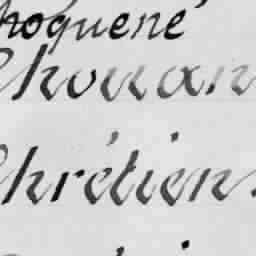 hoquené
Chouan
Chrétien